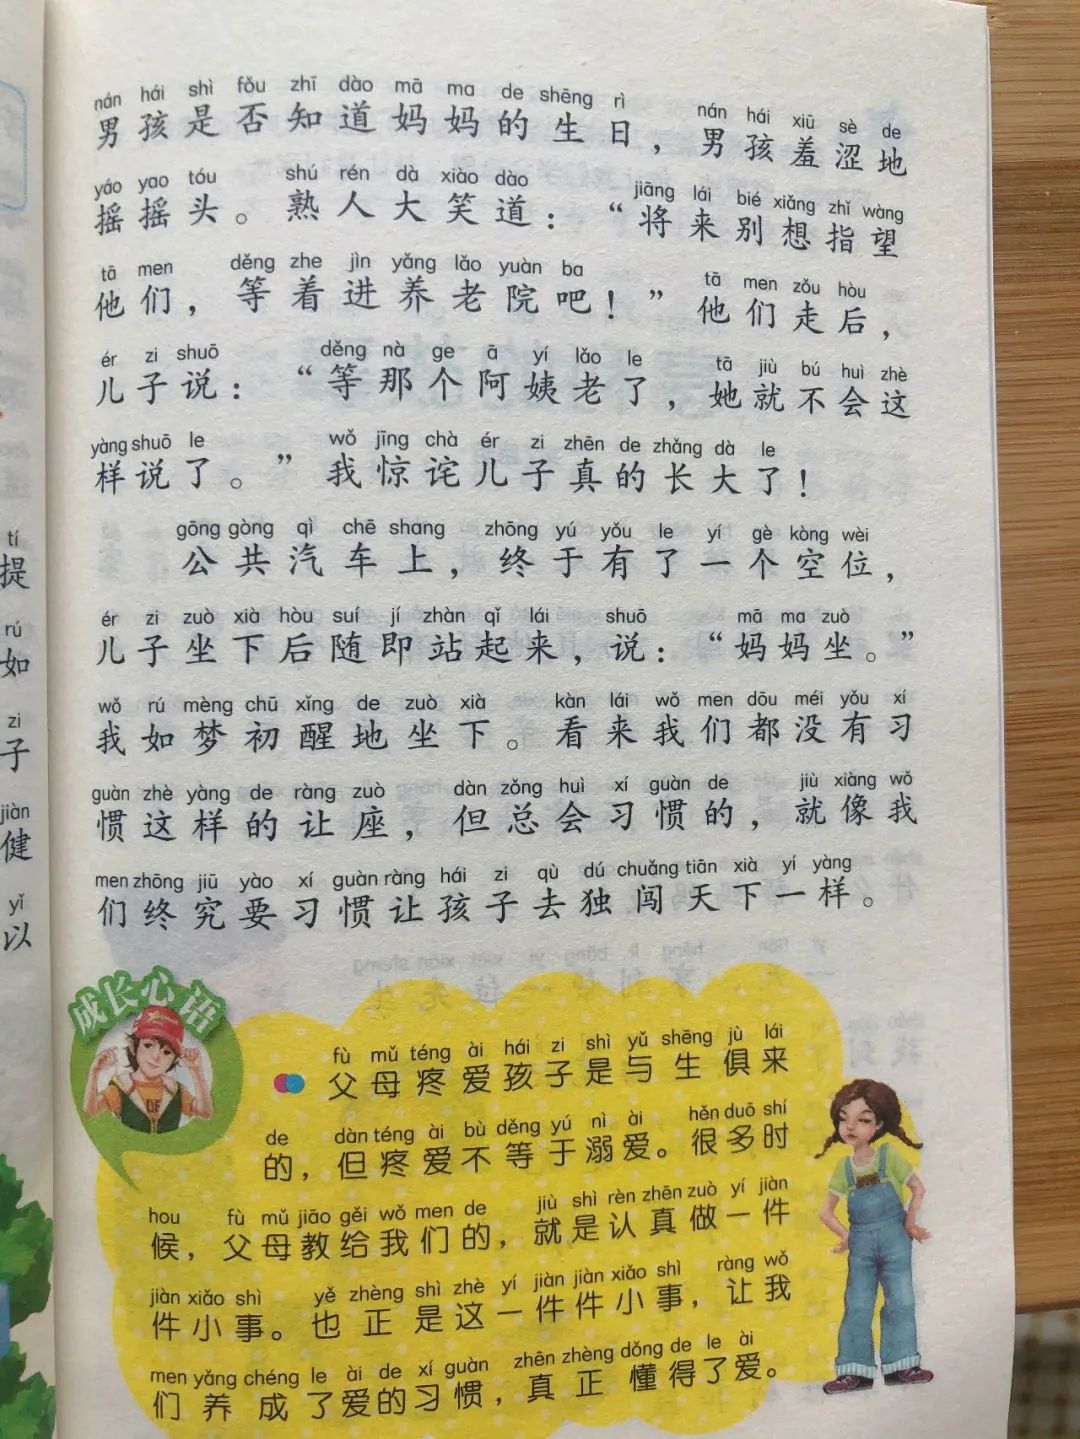 nán hái shì fǒu zhī dào mā ma de shēng rì nán hái xiū sè de
男孩是否知道妈妈的生日，男孩羞涩地
yáo yao tóu shú rén dà xiào dào jiāng lái bié xiǎng zhǐ wàng
摇摇头。熟人大笑道：“将来别想指望
tā men děng zhe jìn yǎng lǎo yuàn ba tā men zǒu hòu
他们，等着进养老院吧！”他们走后，
ér zi shuō děng nà ge ā yí lǎo le tā jiù bú huì zhè
儿子说：“等那个阿姨老了，她就不会这
yàng shuō le wǒ jīng chà ér zi zhēn de zhǎng dà le
样说了。”我惊诧儿子真的长大了！
gōng gòng qì chē shang zhōng yú yǒu le yí gè kòng wèi
公共汽车上，终于有了一个空位，
ér zi zuò xià hòu suí jí zhàn qǐ lái shuō mā ma zuò
儿子坐下后随即站起来，说：“妈妈坐。”
wǒ rú mèng chū xǐng de zuò xià kàn lái wǒ men dōu méi yǒu xí
我如梦初醒地坐下。看来我们都没有习
guàn zhè yàng de ràng zuò dàn zǒng huì xí guàn de jiù xiàng wǒ
惯这样的让座，但总会习惯的，就像我
men zhōng jiū yào xí guàn ràng hái zi qù dú chuǎng tiān xià yí yàng
们终究要习惯让孩子去独闯天下一样。
tí
提
rú
如
zi
子
jiàn
健
yǐ
以
成长心语
fù mǔ téng ài hái zi shì yǔ shēng jù lái
父母疼爱孩子是与生俱来
de dàn téng ài bù děng yú nì ài hěn duō shí
的，但疼爱不等于溺爱。很多时
hou fù mǔ jiāo gěi wǒ men de jiù shì rèn zhēn zuò yí jiàn
候，父母教给我们的，就是认真做一件
jiàn xiǎo shì yě zhèng shì zhè yí jiàn jiàn xiǎo shì ràng wǒ
件小事。也正是这一件件小事，让我
men yǎng chéng le ài de xí guàn zhēn zhèng dǒng de le ài
们养成了爱的习惯，真正懂得了爱。